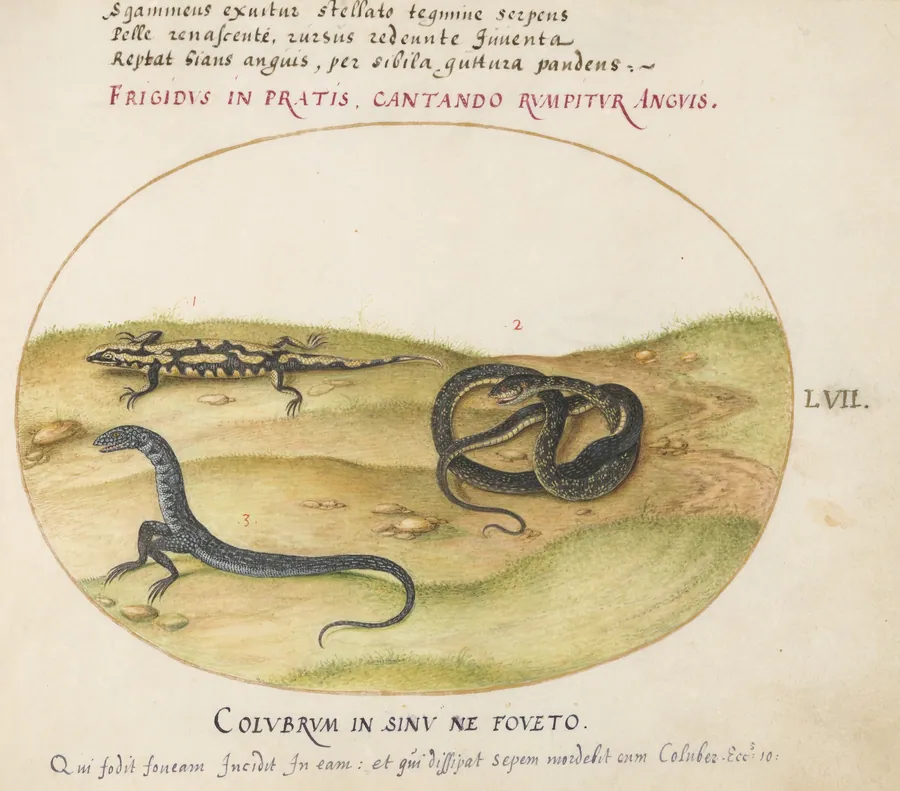 Sgammeus exuitur stellato tegmine serpens
Pelle renascente, rursus redeunte Juventa
Reptat hians anguis, per sibila guttura pandens:~
FRIGIDVS IN PRATIS, CANTANDO RVMPITVR ANGVIS.
1
2
LVII.
3.
COLVBRVM IN SINV NE FOVETO.
Qui fodit foveam Incidit In eam: et qui dissipat sepem mordebit eum Coluber. Eccs 10: